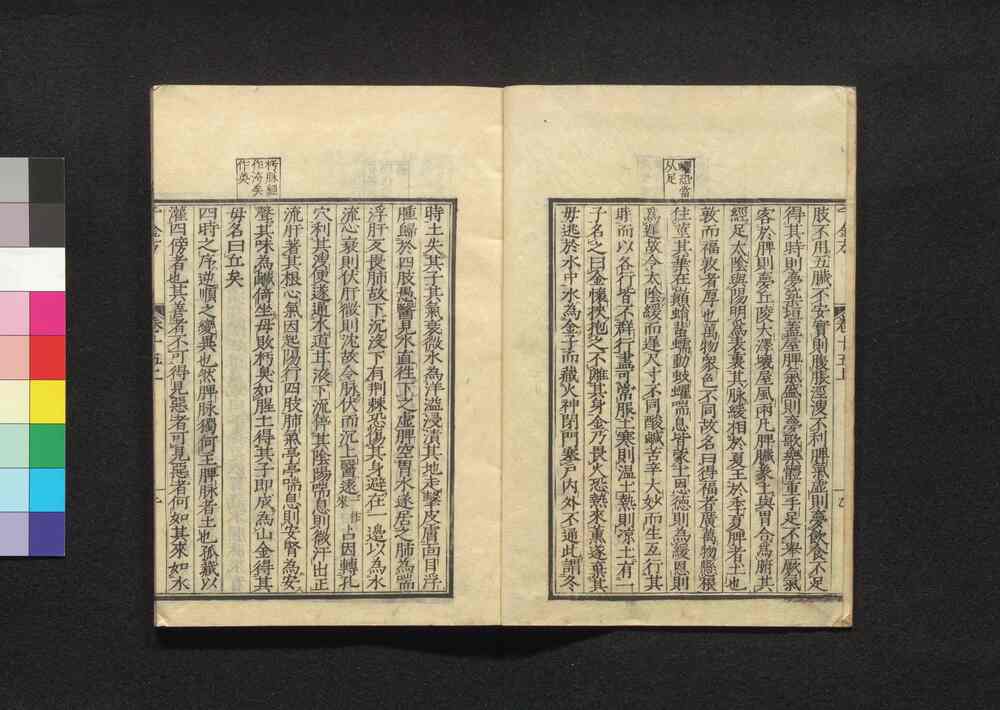 蠷恐當
从足
肢不用五臟不安實則腹脹涇溲不利脾氣虛則夢飲食不足
得其時則夢築垣蓋屋脾氣盛則夢歌樂體重手足不舉厥氣
客於脾則夢丘陵大澤壞屋風雨凡脾臟象土與胃合為腑其
經足太陰與陽明為表裏其脉緩相於夏王於季夏脾者土也
敦而福敦者厚也萬物衆色不同故名曰得福者廣萬物懸根
住莖其葉在巔蜎蜚蠕動蚑蠷喘息皆蒙土恩德則為緩恩則
為遲故令太陰緩而遲尺寸不同酸鹹苦辛大妙而生互行其
時而以各行皆不群行盡可常服土寒則温土熱則凉土有一
子名之曰金懷挾抱之不離其身金乃畏火恐熱來熏遂棄其
母逃於水中水為金子而藏火神閉門塞戶內外不通此謂冬
卷十五上
朽脉經
作洿矣
時土失其子其氣衰微水為洋溢浸漬其地走擊皮膚面目浮
腫歸於四肢愚醫見水直往下之虛脾空胃水遂居之肺為喘
浮肝反畏肺故下沉没下有荆棘恐傷其身避在一邊以為水
流心衰則伏肝微則沈故令脉伏而沉上醫遠一作來占因轉孔
穴利其溲便遂通水道甘液下流停其陰陽喘息則微汗出正
流肝著其根心氣因起陽行四肢肺氣亭亭喘息則安腎為安
聲其味為鹹倚坐母敗朽臭如腥土得其子即成為山金得其
母名曰丘矣
四時之序逆順之變異也然脾脉獨何主脾脉者土也孤藏以
灌四傍者也其善者不可得見惡者可見惡者何如其來如水